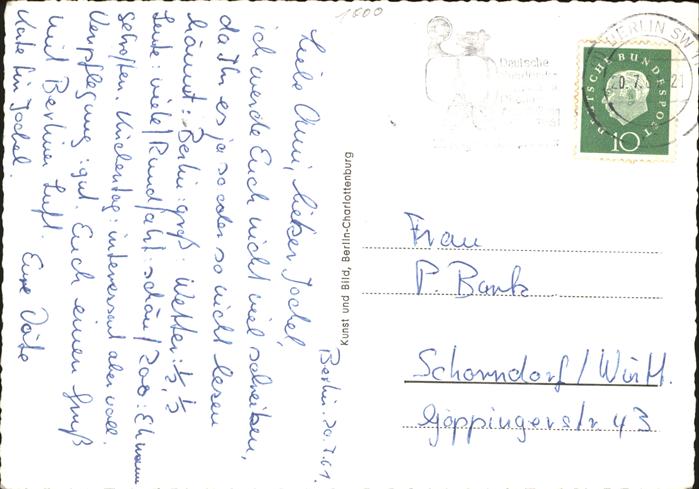 1800
Berlin. 20.7.61.
Liebe Anni, lieber Jockel,
ich werde Euch nicht viel schreiben,
da Ihr es ja so oder so nicht lesen
könnt: Berlin: groß: Wetter: ½, ½
Leute: viele/Rundfahrt: schön/Zoo:
getroffen. Kirchentag: interessant aber voll.
Verpflegung: gut. Euch einen Gruß
mit Berliner Luft. Eure Däte
Kunst und Bild, Berlin-Charlottenburg
Deutsche
BERLIN SW
DEUTSCHE BUNDESPOST
10
Frau
P. Bank
Schorndorf/Württ.
Göppingerstr. 43